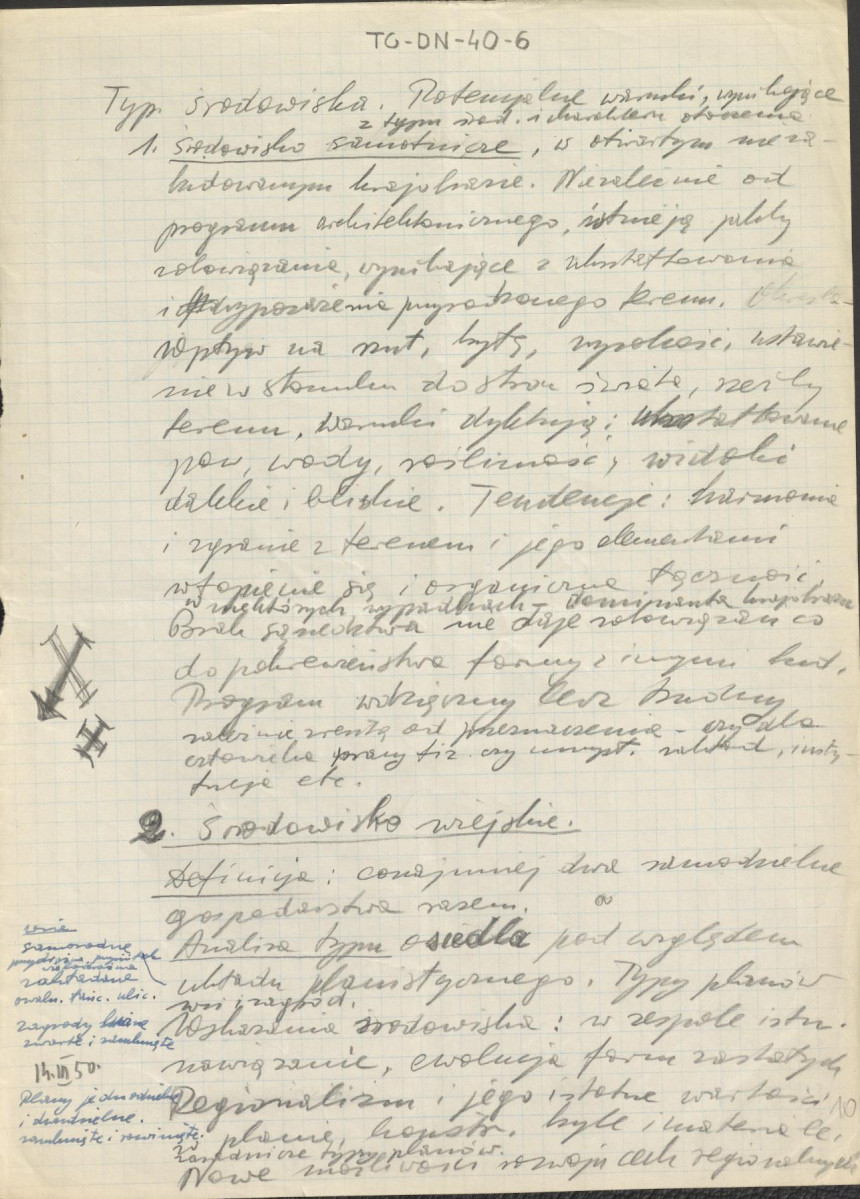 TG-DN-40-6
Typ. środowiska. Potencjalne warunki, wynikające
z typu środ. i charakteru otoczenia
1. Środowisko samotnicze, w otwartym nieza-
budowanym krajobrazie. Niezależnie od
programu architektonicznego, istnieją jakby
zobowiązania, wynikające z ukształtowania
i wyposażenia przyrodzonego terenu.
Wpływ na rzut, bryłę, wysokość, ustawie-
nie w stosunku do stron świata, rzeźby
terenu, warunki dyktują: ukształtowanie
pow, wody, roślinność, widoki
dalekie i bliskie. Tendencje: harmonia
i zgranie z terenem i jego elementami
wtopienie się i organiczna łączność,
w niektórych wypadkach - dominanta krajobrazu
Brak sąsiedztwa nie daje zobowiązań co
do pokrewieństwa formy z innymi bud.
Program wdzięczny lecz trudny
zależnie zresztą od przeznaczenia - czy dla
człowieka pracy fiz. czy umysł. zakład, insty-
tucja etc.
2. Środowisko wiejskie.
Definicja: conajmniej dwa samodzielne
gospodarstwa razem.
Analiza typu osiedla pod względem
układu planistycznego. Typy planów
wsi i zagród.
Wskazania środowiska: w zespole istn.
nawiązanie, ewolucja form zastałych
Regionalizm i jego istotne wartości
w planie, konstr. bryle i materiale,
zasadnicze typy planów.
Nowe możliwości rozwoju cech regionalnych
wsie
samorodne
zakładane
owaln. łańc. ulic.
zagrody luźne
zwarte i zamknięte
14.III 50.
Plany jednodzielne
i dwudzielne.
zamknięte i rozwinięte.
10